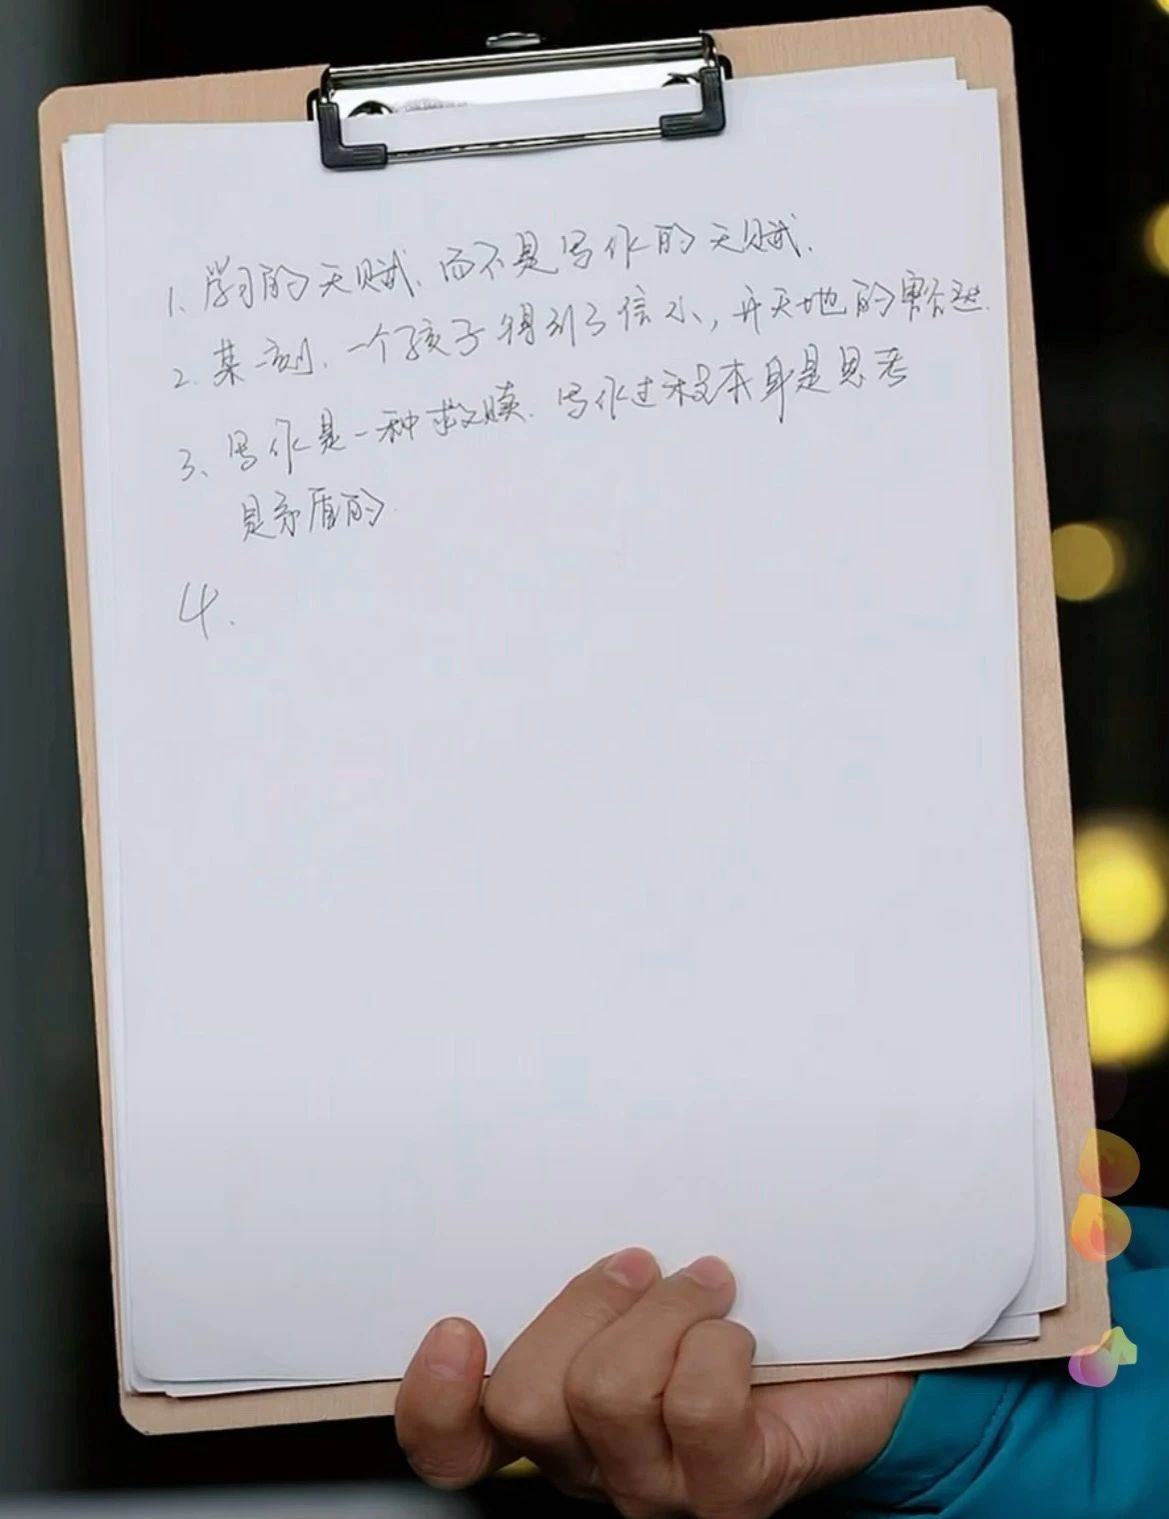 1、学习的天赋、而不是写作的天赋.
2. 某一刻、一个孩子得到了信心,开天地的豁达.
3、写作是一种救赎. 写作过程本身是思考
是矛盾的.
4.